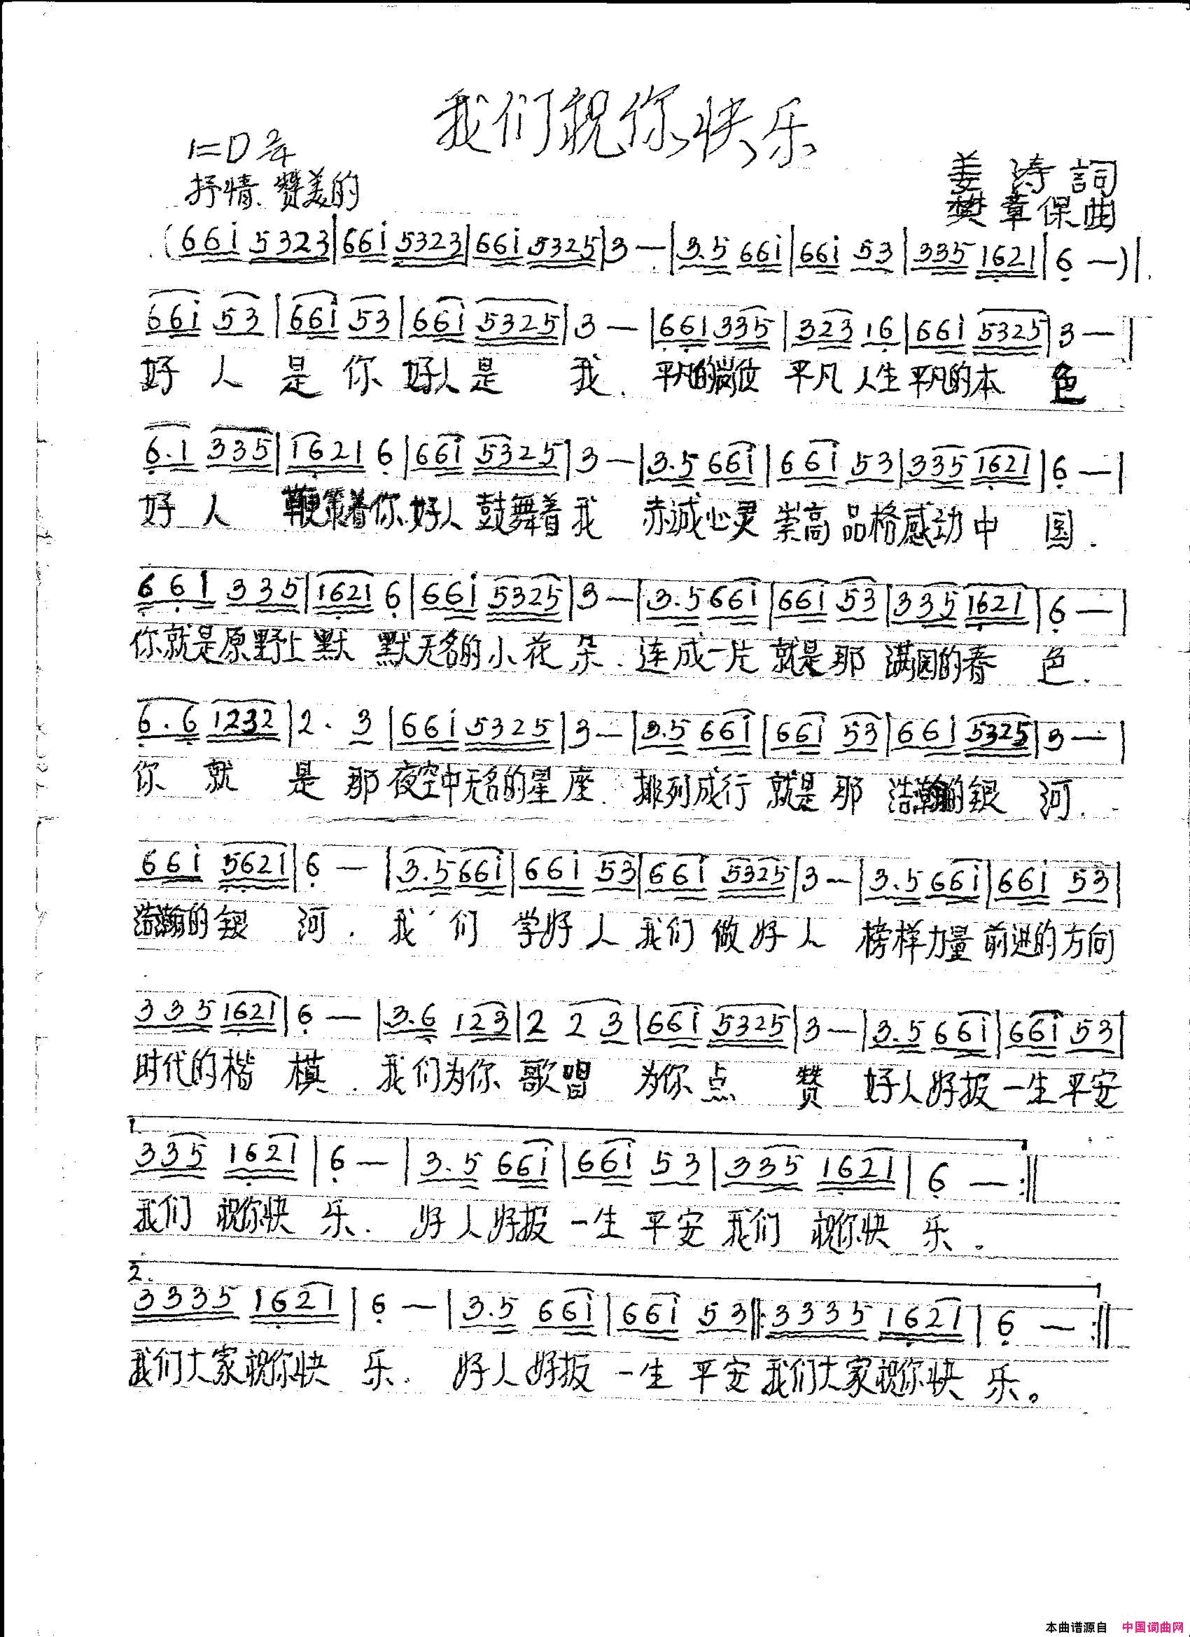 我们祝你快乐
1=D 2/4
抒情、赞美的
姜涛詞
樊章保曲
(66i 5323|66i 5323|66i 5325|3 —|3.5 66i|66i 53|335 1621|6 —)|
66i 53|66i 53|66i 5325|3 —|661 335|323 16|66i 5325|3 —|
好人是你好人是我.平凡的岗位平凡人生平凡的本色
6.1 335|1621 6|66i 5325|3 —|3.5 66i|66i 53|335 1621|6 —|
好人鞭策着你好人鼓舞着我赤诚心灵崇高品格感动中国.
661 335|1621 6|66i 5325|3 —|3.5 66i|66i 53|335 1621|6 —|
你就是原野上默默无名的小花朵.连成一片就是那满园的春色.
6.6 1232|2. 3|66i 5325|3 —|3.5 66i|66i 53|66i 5325|3 —|
你就是那夜空中无名的星座.排列成行就是那浩瀚的银河.
66i 5621|6 —|3.5 66i|66i 53|66i 5325|3 —|3.5 66i|66i 53|
浩瀚的银河.我们学好人我们做好人榜样力量前进的方向
335 1621|6 —|3.6 123|2 2 3|66i 5325|3 —|3.5 66i|66i 53|
时代的楷模.我们为你歌唱为你点赞好人好报一生平安
1.
335 1621|6 —|3.5 66i|66i 53|335 1621|6 —:||
我们祝你快乐.好人好报一生平安我们祝你快乐.
2.
3335 1621|6 —|3.5 66i|66i 53||:3335 1621|6 —:||
我们大家祝你快乐.好人好报一生平安我们大家祝你快乐。
本曲谱源自 中国词曲网